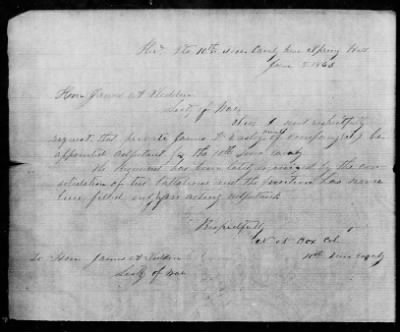 Hdqr the 10th Tenn Cavly near Spring Hill
June 5 1863
Hon James A Seddon
Secty of War
Sir I most respectfully
request that private James T of company be
appointed adjutant for the 10th Tenn cavalry
The Regiment has been lately organized by the con-
solidation of two Battalions and the position has never
been filled only an acting adjutant
Respectfully
N N Cox Col
10th Tenn cavalry
To Hon James A Seddon
Secty of War